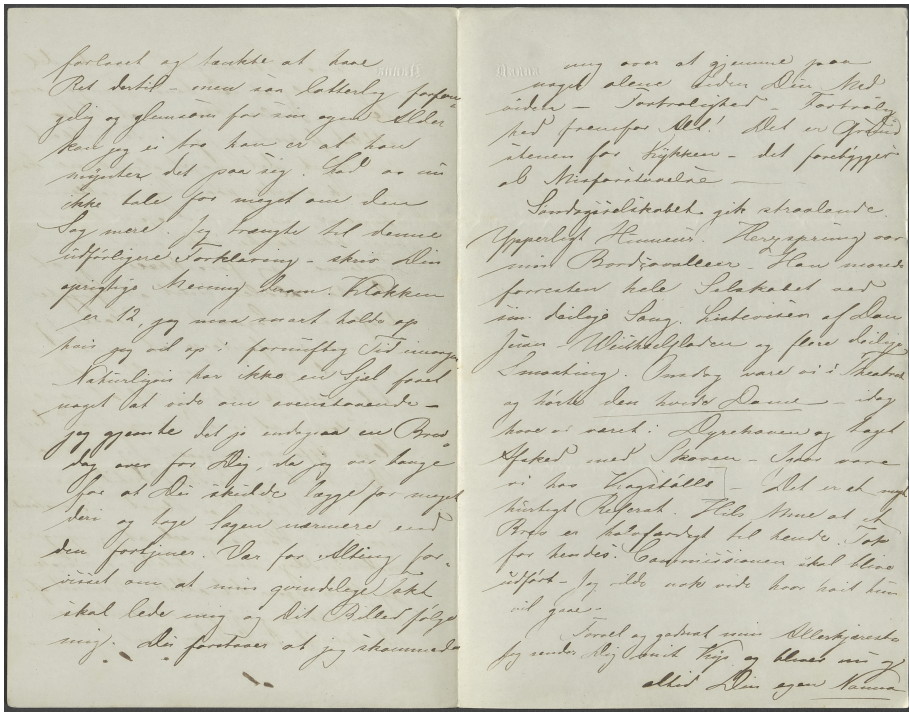 forlovet og tænkte at have
Ret dertil – men saa latterlig forfæn-
gelig og glemsom for sin egen Alder
kan jeg ei tro han er at han
mynter det paa sig. Lad os nu
ikke tale for meget om den
Sag mere. Jeg trængte til denne
udførligere Forklaring – skriv Din
oprigtige Mening derom. Klokken
er 12, jeg maa snart holde op
hvis jeg vil op i fornuftig Tid imorgen
Naturligvis har ikke en Sjel faaet
noget at vide om ovenstaaende –
jeg gjemte det jo endogsaa en Brev-
dag over for Dig, da jeg var bange
for at Du skulde lægge for meget
deri og tage Sagen nærmere end
den fortjener. Vær for Alting for-
visset om at min qvindelige Takt
skal lede mig og Dit Billed følge
mig. Du forstaaer at jeg skammede
mig over at gjemme paa
noget alene uden Din Med-
viden – Fortrolighed – Fortrolig-
hed fremfor Alt! Det er Grund
stenen for Lykken – det forebygger
al Misforstaaelse –
Søndagsselskabet gik straalende.
Ypperligt Humeur. Herzsprung var
min Bordcavalleer – Han morede
forresten hele Selskabet ved
sin deilige Sang. Listevisen af Don
Juan – og flere deilige
Smaating. Onsdag vare vi i Theatret
og hørte den hvide Dame – idag
have vi været i Dyrehaven og taget
Afsked med Skoven – Igaar vare
vi hos – Det er et meget
hurtigt Referat. Hils Mine at et
Brev er halvfærdigt til hende. Tak
for hendes. Commissionen skal blive
udført – Jeg vilde nok vide hvor høit hun
vil gaae –
Farvel og godnat min Allerkjæreste
jeg sender Dig mit Kys og bliver nu og
altid Din egen Nanna